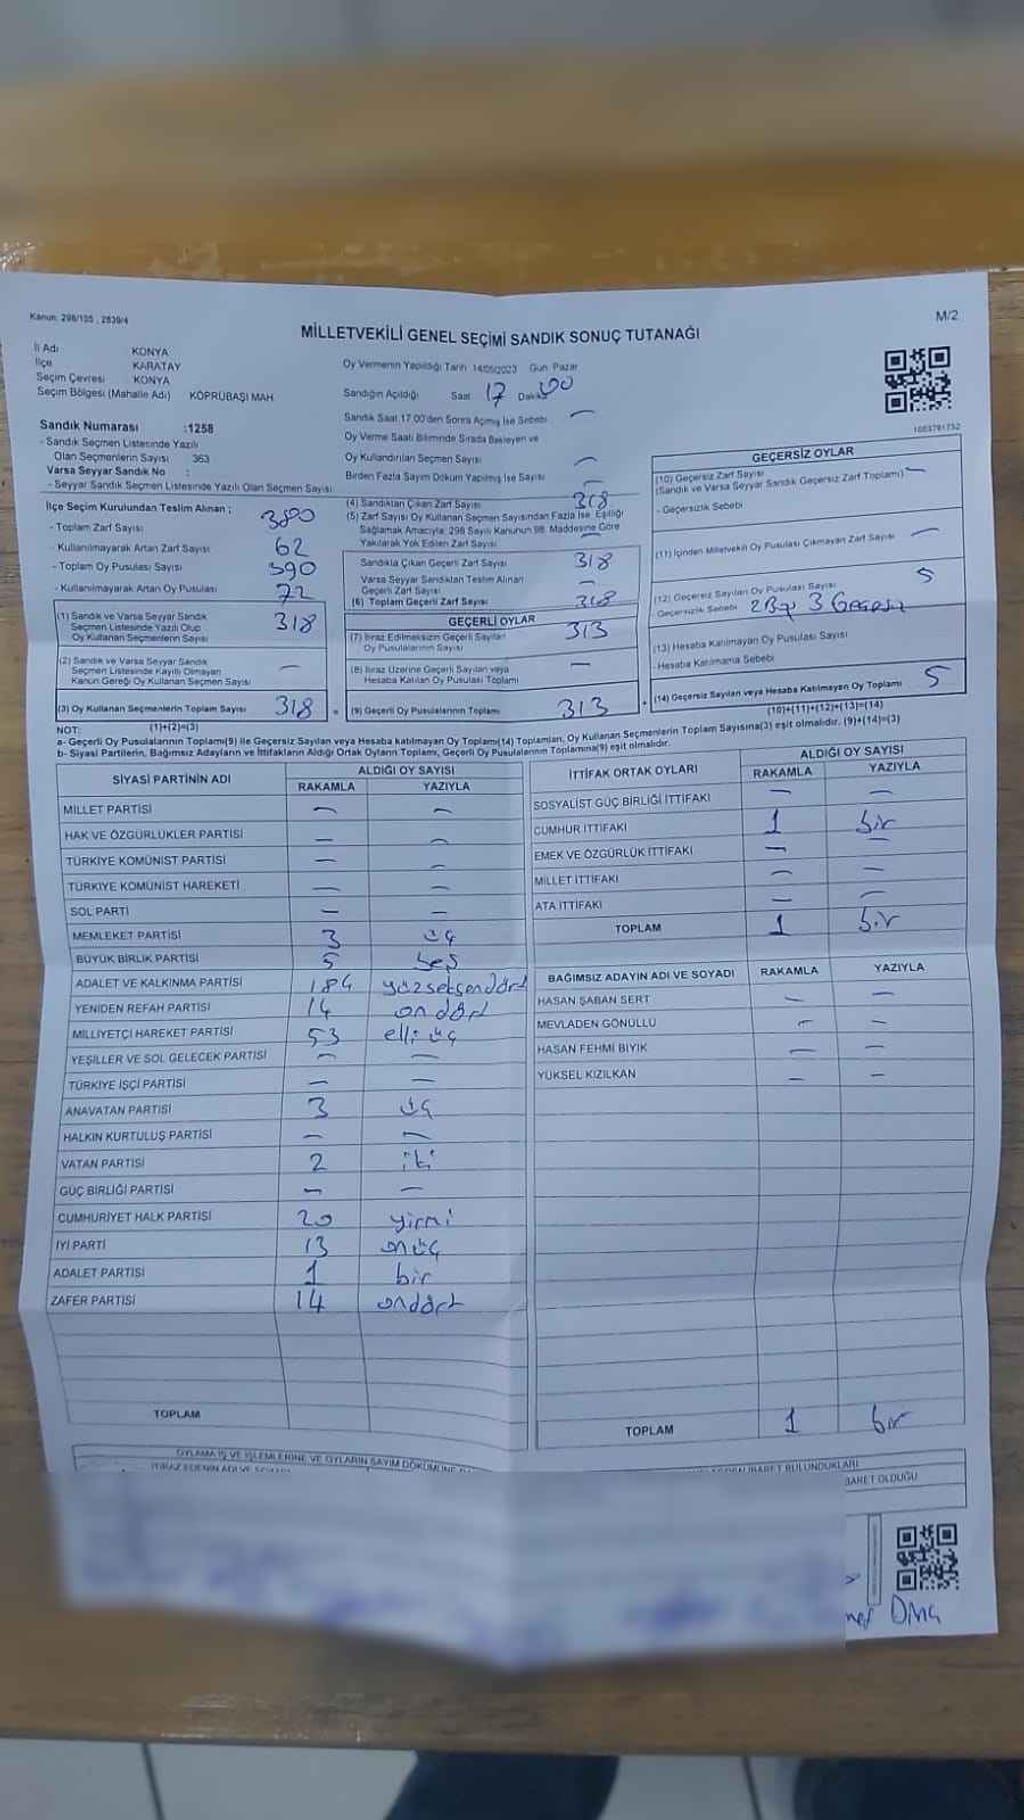 Kanun: 298/105 , 2839/4
M/2
MİLLETVEKİLİ GENEL SEÇİMİ SANDIK SONUÇ TUTANAĞI
İl Adı KONYA
İlçe KARATAY
Seçim Çevresi KONYA
Seçim Bölgesi (Mahalle Adı) KÖPRÜBAŞI MAH.
Oy Vermenin Yapıldığı Tarih 14/05/2023 Gün Pazar
Sandığın Açıldığı Saat 17 Dakika 00
Sandık Saat 17.00'den Sonra Açmış İse Sebebi —
Sandık Numarası :1258
- Sandık Seçmen Listesinde Yazılı
Olan Seçmenlerin Sayısı 363
Varsa Seyyar Sandık No :
- Seyyar Sandık Seçmen Listesinde Yazılı Olan Seçmen Sayısı:
Oy Verme Saati Bitiminde Sırada Bekleyen ve
Oy Kullandırılan Seçmen Sayısı —
Birden Fazla Sayım Döküm Yapılmış İse Sayısı —
İlçe Seçim Kurulundan Teslim Alınan ;
- Toplam Zarf Sayısı 380
- Kullanılmayarak Artan Zarf Sayısı 62
- Toplam Oy Pusulası Sayısı 390
- Kullanılmayarak Artan Oy Pusulası 72
(1) Sandık ve Varsa Seyyar Sandık
Seçmen Listesinde Yazılı Olup
Oy Kullanan Seçmenlerin Sayısı 318
(2) Sandık ve Varsa Seyyar Sandık
Seçmen Listesinde Kayıtlı Olmayan
Kanun Gereği Oy Kullanan Seçmen Sayısı —
(3) Oy Kullanan Seçmenlerin Toplam Sayısı 318
(1)+(2)=(3)
(4) Sandıktan Çıkan Zarf Sayısı 318
(5) Zarf Sayısı Oy Kullanan Seçmen Sayısından Fazla İse, Eşitliği
Sağlamak Amacıyla; 298 Sayılı Kanunun 98. Maddesine Göre
Yakılarak Yok Edilen Zarf Sayısı —
Sandıkla Çıkan Geçerli Zarf Sayısı 318
Varsa Seyyar Sandıktan Teslim Alınan
Geçerli Zarf Sayısı —
(6) Toplam Geçerli Zarf Sayısı 318
GEÇERLİ OYLAR
(7) İtiraz Edilmeksizin Geçerli Sayılan
Oy Pusulalarının Sayısı 313
(8) İtiraz Üzerine Geçerli Sayılan veya
Hesaba Katılan Oy Pusulası Toplamı —
(9) Geçerli Oy Pusulalarının Toplamı 313
GEÇERSİZ OYLAR
(10) Geçersiz Zarf Sayısı
(Sandık ve Varsa Seyyar Sandık Geçersiz Zarf Toplamı) —
- Geçersizlik Sebebi
(11) İçinden Milletvekili Oy Pusulası Çıkmayan Zarf Sayısı —
(12) Geçersiz Sayılan Oy Pusulası Sayısı 5
Geçersizlik Sebebi 2 3 Geçersiz
(13) Hesaba Katılmayan Oy Pusulası Sayısı
- Hesaba Katılmama Sebebi
(14) Geçersiz Sayılan veya Hesaba Katılmayan Oy Toplamı 5
(10)+(11)+(12)+(13)=(14)
NOT:
a- Geçerli Oy Pusulalarının Toplamı(9) ile Geçersiz Sayılan veya Hesaba katılmayan Oy Toplamı(14) Toplamları, Oy Kullanan Seçmenlerin Toplam Sayısına(3) eşit olmalıdır. (9)+(14)=(3)
b- Siyasi Partilerin, Bağımsız Adayların ve İttifakların Aldığı Ortak Oyların Toplamı, Geçerli Oy Pusulalarının Toplamına(9) eşit olmalıdır.
SİYASİ PARTİNİN ADI ALDIĞI OY SAYISI
RAKAMLA YAZIYLA
MİLLET PARTİSİ — —
HAK VE ÖZGÜRLÜKLER PARTİSİ — —
TÜRKİYE KOMÜNİST PARTİSİ — —
TÜRKİYE KOMÜNİST HAREKETİ — —
SOL PARTİ — —
MEMLEKET PARTİSİ 3 üç
BÜYÜK BİRLİK PARTİSİ 5 beş
ADALET VE KALKINMA PARTİSİ 184 yüzseksendört
YENİDEN REFAH PARTİSİ 14 ondört
MİLLİYETÇİ HAREKET PARTİSİ 53 elli üç
YEŞİLLER VE SOL GELECEK PARTİSİ — —
TÜRKİYE İŞÇİ PARTİSİ — —
ANAVATAN PARTİSİ 3 üç
HALKIN KURTULUŞ PARTİSİ — —
VATAN PARTİSİ 2 iki
GÜÇ BİRLİĞİ PARTİSİ — —
CUMHURİYET HALK PARTİSİ 20 yirmi
İYİ PARTİ 13 onüç
ADALET PARTİSİ 1 bir
ZAFER PARTİSİ 14 ondört
TOPLAM
İTTİFAK ORTAK OYLARI ALDIĞI OY SAYISI
RAKAMLA YAZIYLA
SOSYALİST GÜÇ BİRLİĞİ İTTİFAKI — —
CUMHUR İTTİFAKI 1 bir
EMEK VE ÖZGÜRLÜK İTTİFAKI — —
MİLLET İTTİFAKI — —
ATA İTTİFAKI — —
TOPLAM 1 bir
BAĞIMSIZ ADAYIN ADI VE SOYADI RAKAMLA YAZIYLA
HASAN ŞABAN SERT — —
MEVLADEN GÖNÜLLÜ — —
HASAN FEHMİ BIYIK — —
YÜKSEL KIZILKAN — —
TOPLAM 1 bir
OYLAMA İŞ VE İŞLEMLERİNE VE OYLARIN SAYIM DÖKÜMÜNE
BULUNDUKLARI
OLDUĞU